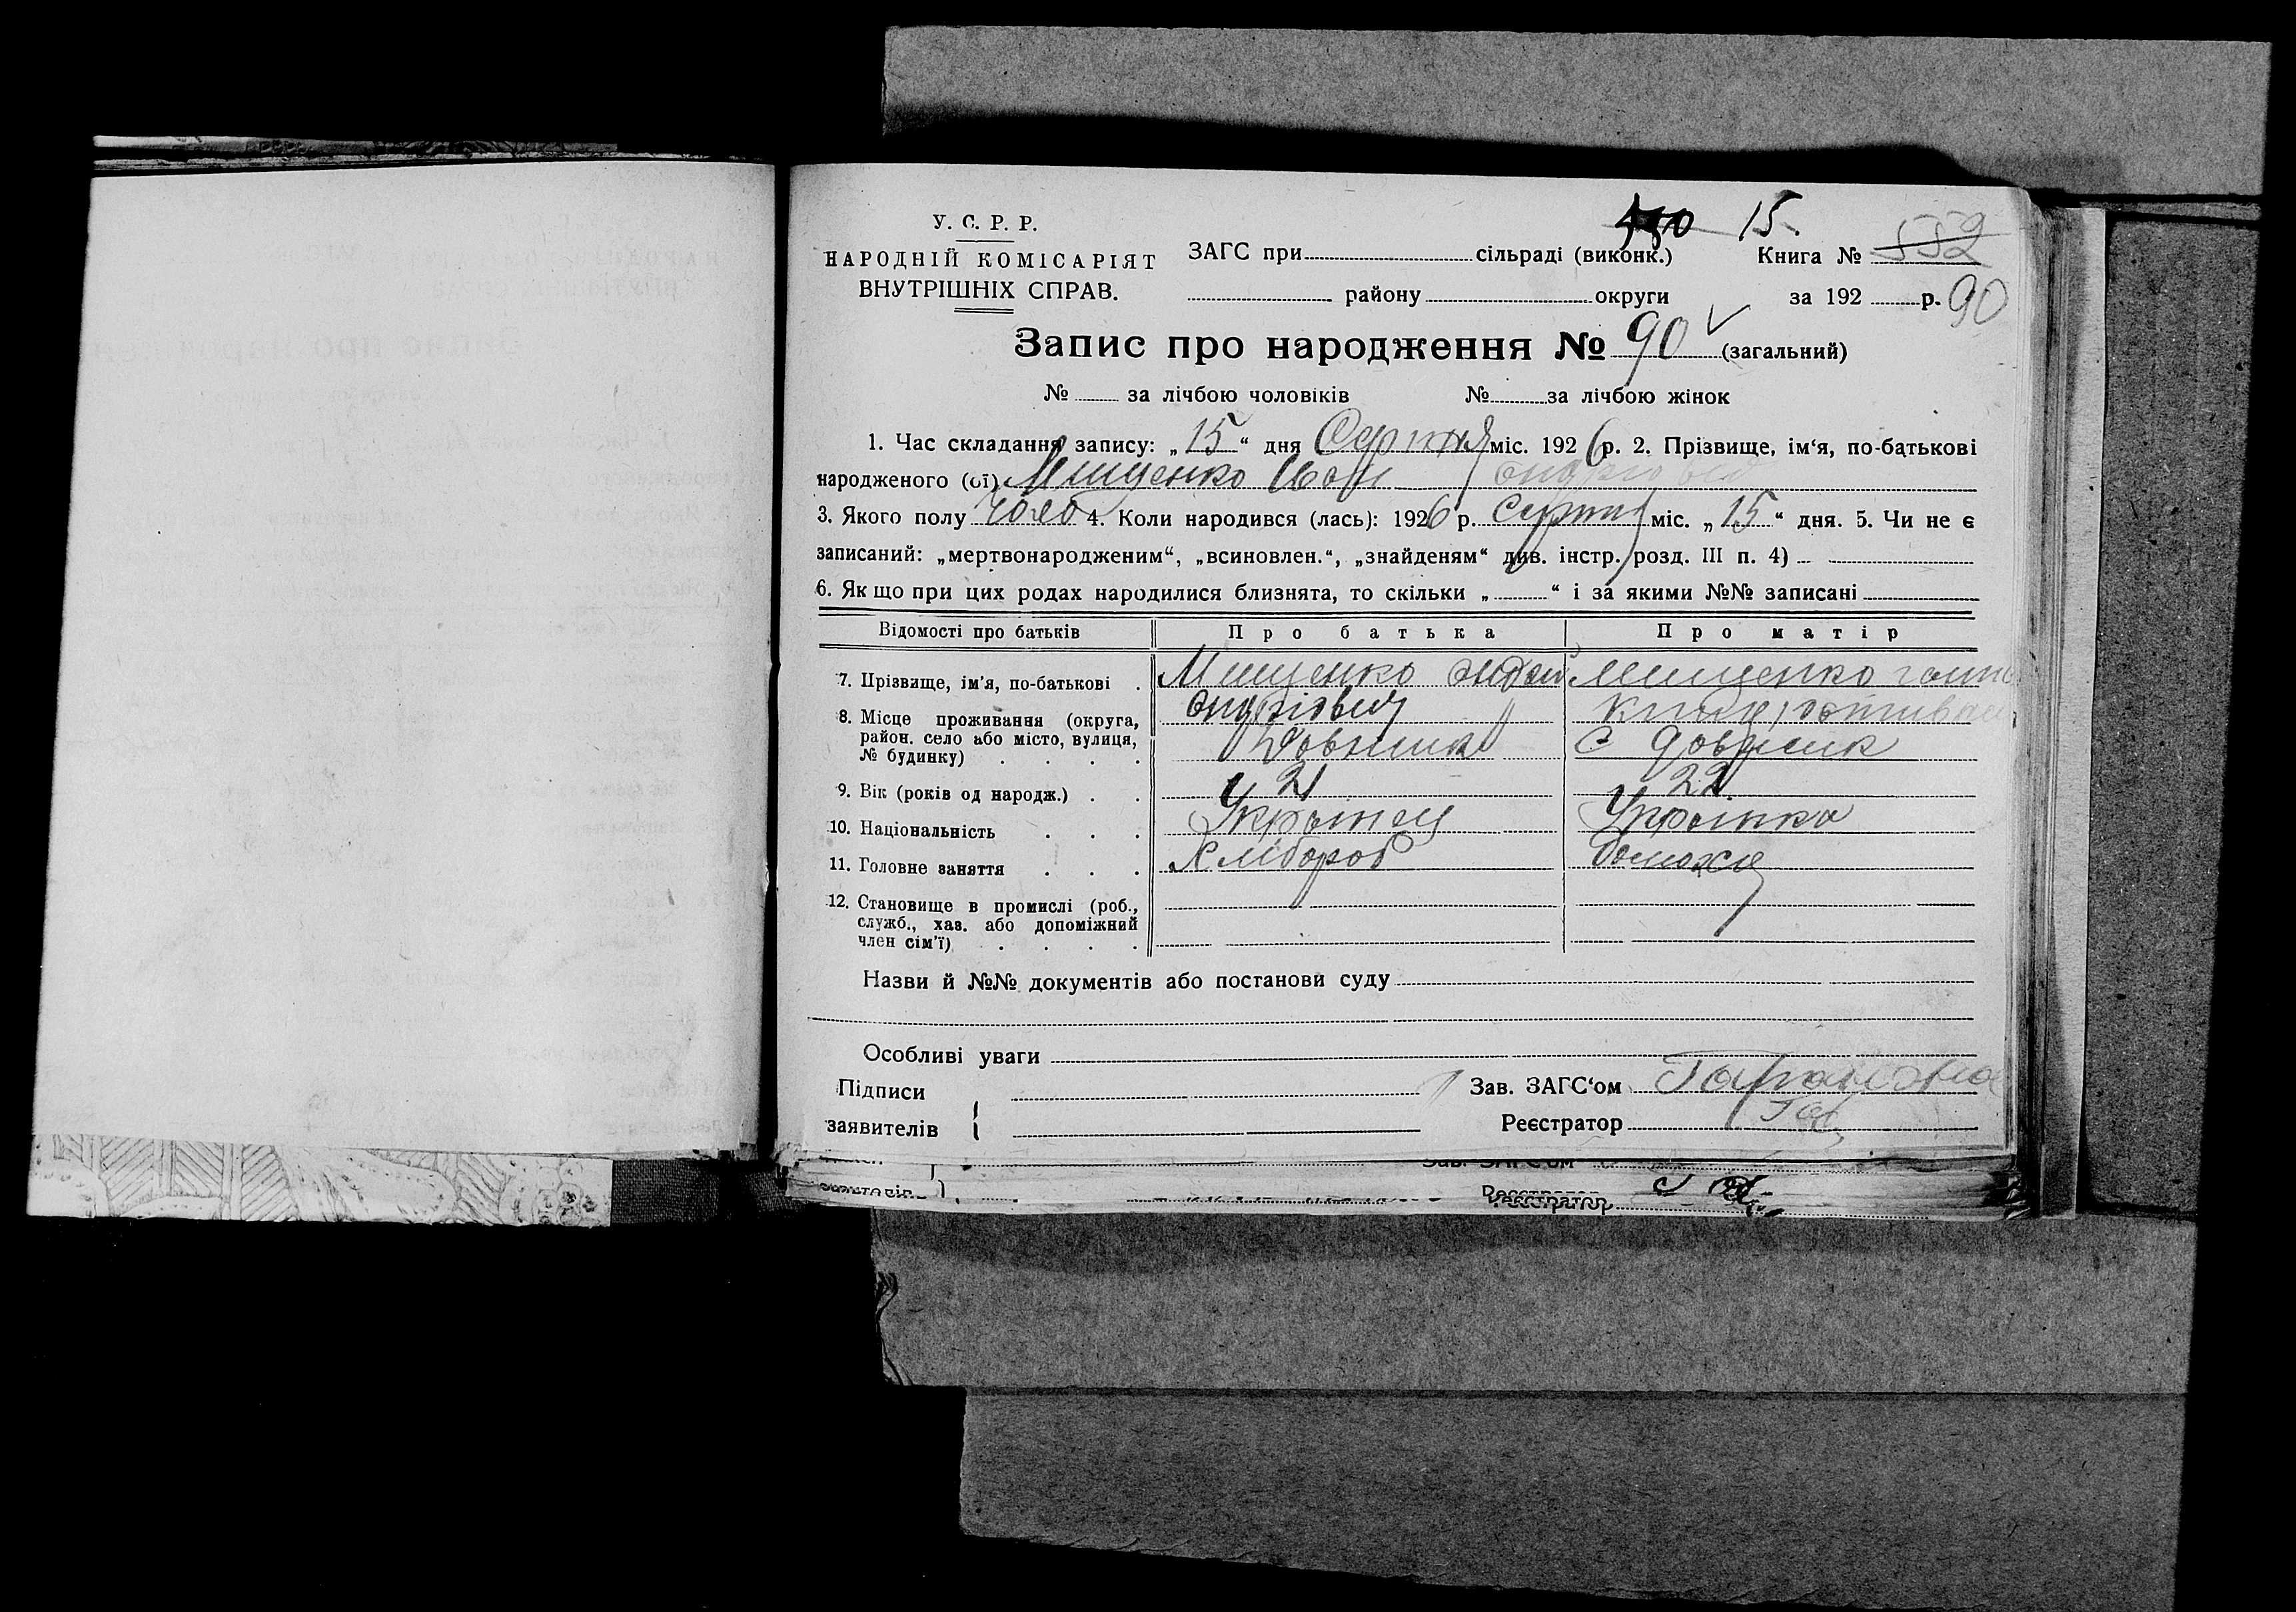 У. С. Р. Р.
НАРОДНІЙ КОМІСАРІЯТ
ВНУТРІШНІХ СПРАВ.
15.
ЗАГС при сільраді (виконк.) Книга № 552
району округи за 192 р. 90
Запис про народження № 90 (загальний)
№ за лічбою чоловіків № за лічбою жінок
1. Час складання запису: „15“ дня Серпня міс. 1926 р. 2. Прізвище, ім‘я, по-батькові
народженого (ої) Мищенко Иван
3. Якого полу чолов 4. Коли народився (лась): 1926 р. Серпня міс. „15“ дня. 5. Чи не є
записаний: „мертвонародженим“, „всиновлен.“, „знайденям“ див. інстр. розд. III п. 4)
6. Як що при цих родах народилися близнята, то скільки „ “ і за якими №№ записані
Відомості про батьків Про батька Про матір
7. Прізвище, ім‘я, по-батькові Мищенко Андрій Мищенко
Андріович
8. Місце проживання (округа,
район. село або місто, вулиця,
№ будинку) С
9. Вік (років од народж.) 21 22
10. Національність Українец Українка
11. Головне заняття Хлібороб
12. Становище в промислі (роб.,
служб., хаз. або допоміжний
член сім‘ї)
Назви й №№ документів або постанови суду
Особливі уваги
Підписи Зав. ЗАГС‘ом
заявителів Реєстратор
Реєстратор